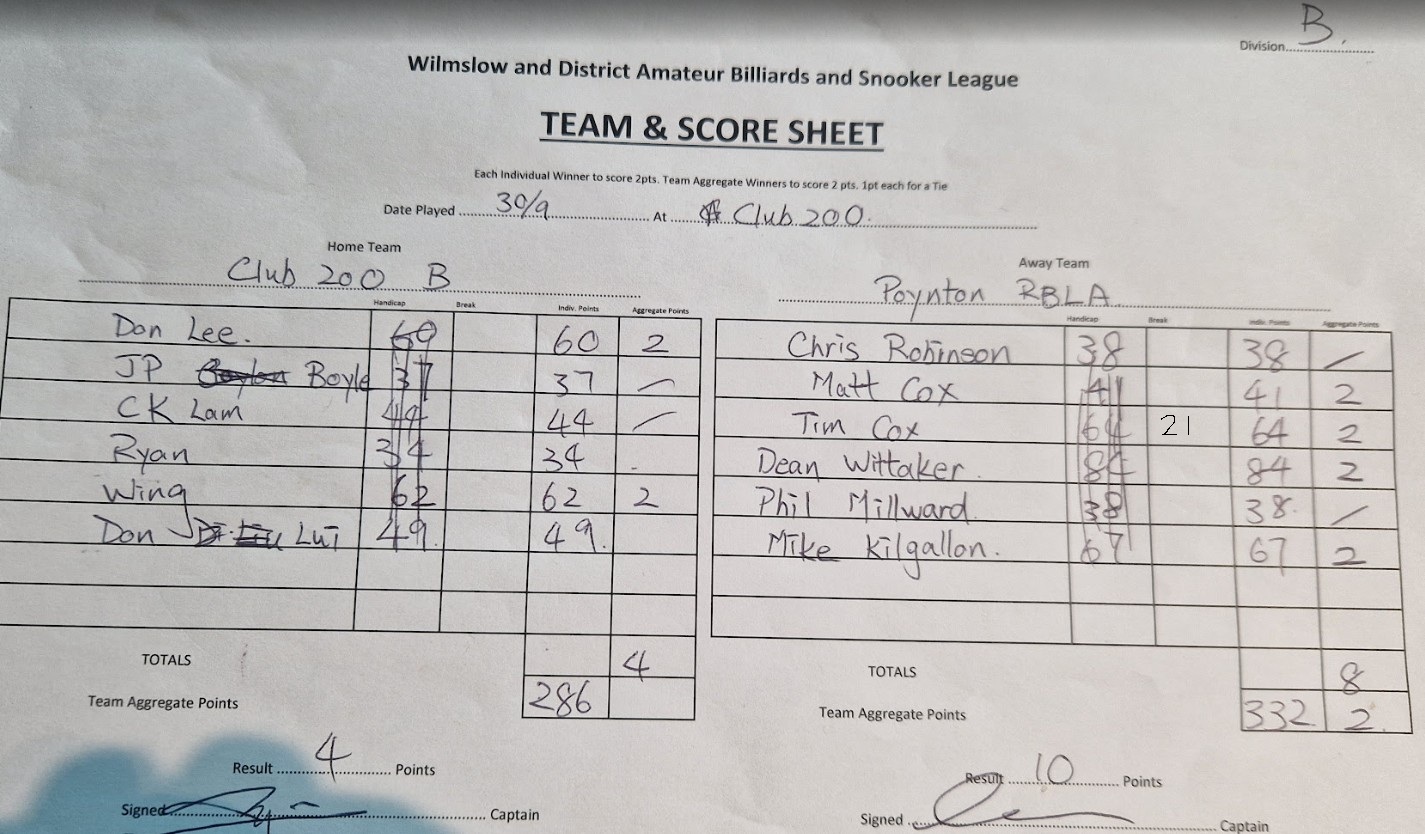 B.
Division
Wilmslow and District Amateur Billiards and Snooker League
TEAM & SCORE SHEET
Each Individual Winner to score 2pts. Team Aggregate Winners to score 2 pts. 1pt each for a Tie
Date Played 30/9 At Club 200.
Home Team
Club 200 B
Handicap Break Indiv. Points Aggregate Points
Don Lee. 60 60 2
JP Boyle 37 37 —
CK Lam 44 44 —
Ryan 34 34 .
Wing 62 62 2
Don Lui 49. 49.
TOTALS 4
Team Aggregate Points 286
Result 4 Points
Signed Captain
Away Team
Poynton RBLA
Handicap Break Indiv. Points Aggregate Points
Chris Robinson 38 38 —
Matt Cox 41 41 2
Tim Cox 64 21 64 2
Dean Wittaker. 84 84 2
Phil Millward. 38 38. —
Mike Kilgallon. 67 67 2
TOTALS 8
Team Aggregate Points 332 2
Result 10 Points
Signed Captain